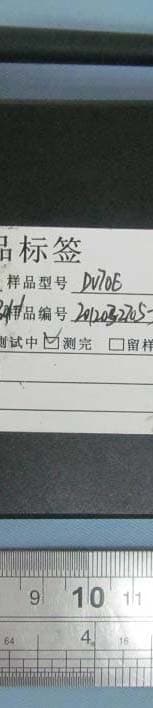 品标签
样品型号 DV70E
样品编号 2012032705-
测试中 ☑测完 □留样
9 10 11
64 4 16